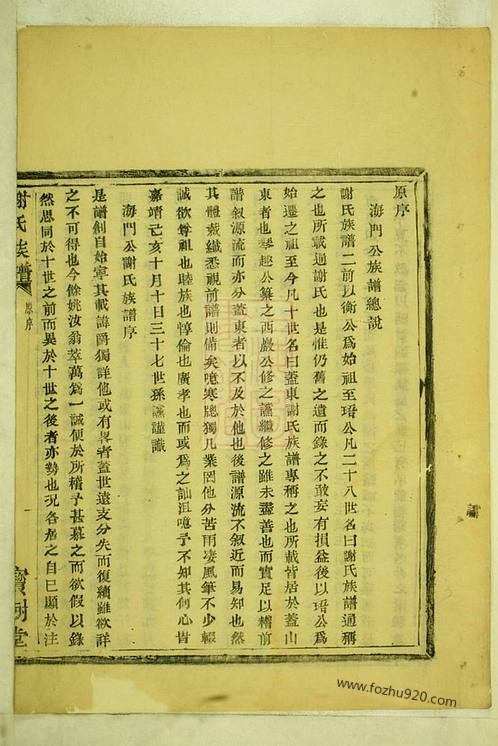 原序
海門公族譜總說
謝氏族譜二前以衡公爲始祖至珺公凡二十八世名曰謝氏族譜通稱
之也所載通謝氏也是惟仍舊之遺而錄之不敢妄有損益後以珺公爲
始遷之祖至今凡十世名曰蓋東謝氏族譜專稱之也所載皆居於蓋山
東者也琴趣公纂之西巖公修之讌繼修之雖未盡善也而實足以稽前
譜叙源流而亦分蓋東者以不及於他也後譜源流不叙近而易知也然
其體裁纖悉視前譜則備矣噫寒牕獨几業罔他分苦雨凄風筆不少輟
誠欲尊祖也睦族也惇倫也廣孝也而或爲之訕沮噫予不知其何心皆
嘉靖己亥十月十日三十七世孫讌謹識
海門公謝氏族譜序
是譜創自始寧其載諱爵獨詳他或有畧者蓋世遠支分失而復續雖欲詳
之不可得也今餘姚汝翁萃萬爲一誠便於所稽予甚慕之而欲假以錄
然思同於十世之前而異於十世之後者亦勢也况各居之自已顯於注
謝氏族譜
原序
一
寶樹堂
www.fozhu920.com